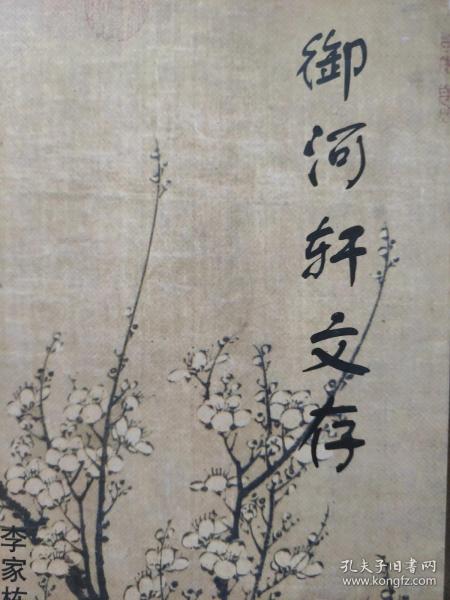 御河轩文存
李家栋
孔夫子旧书网
www.kongfz.com